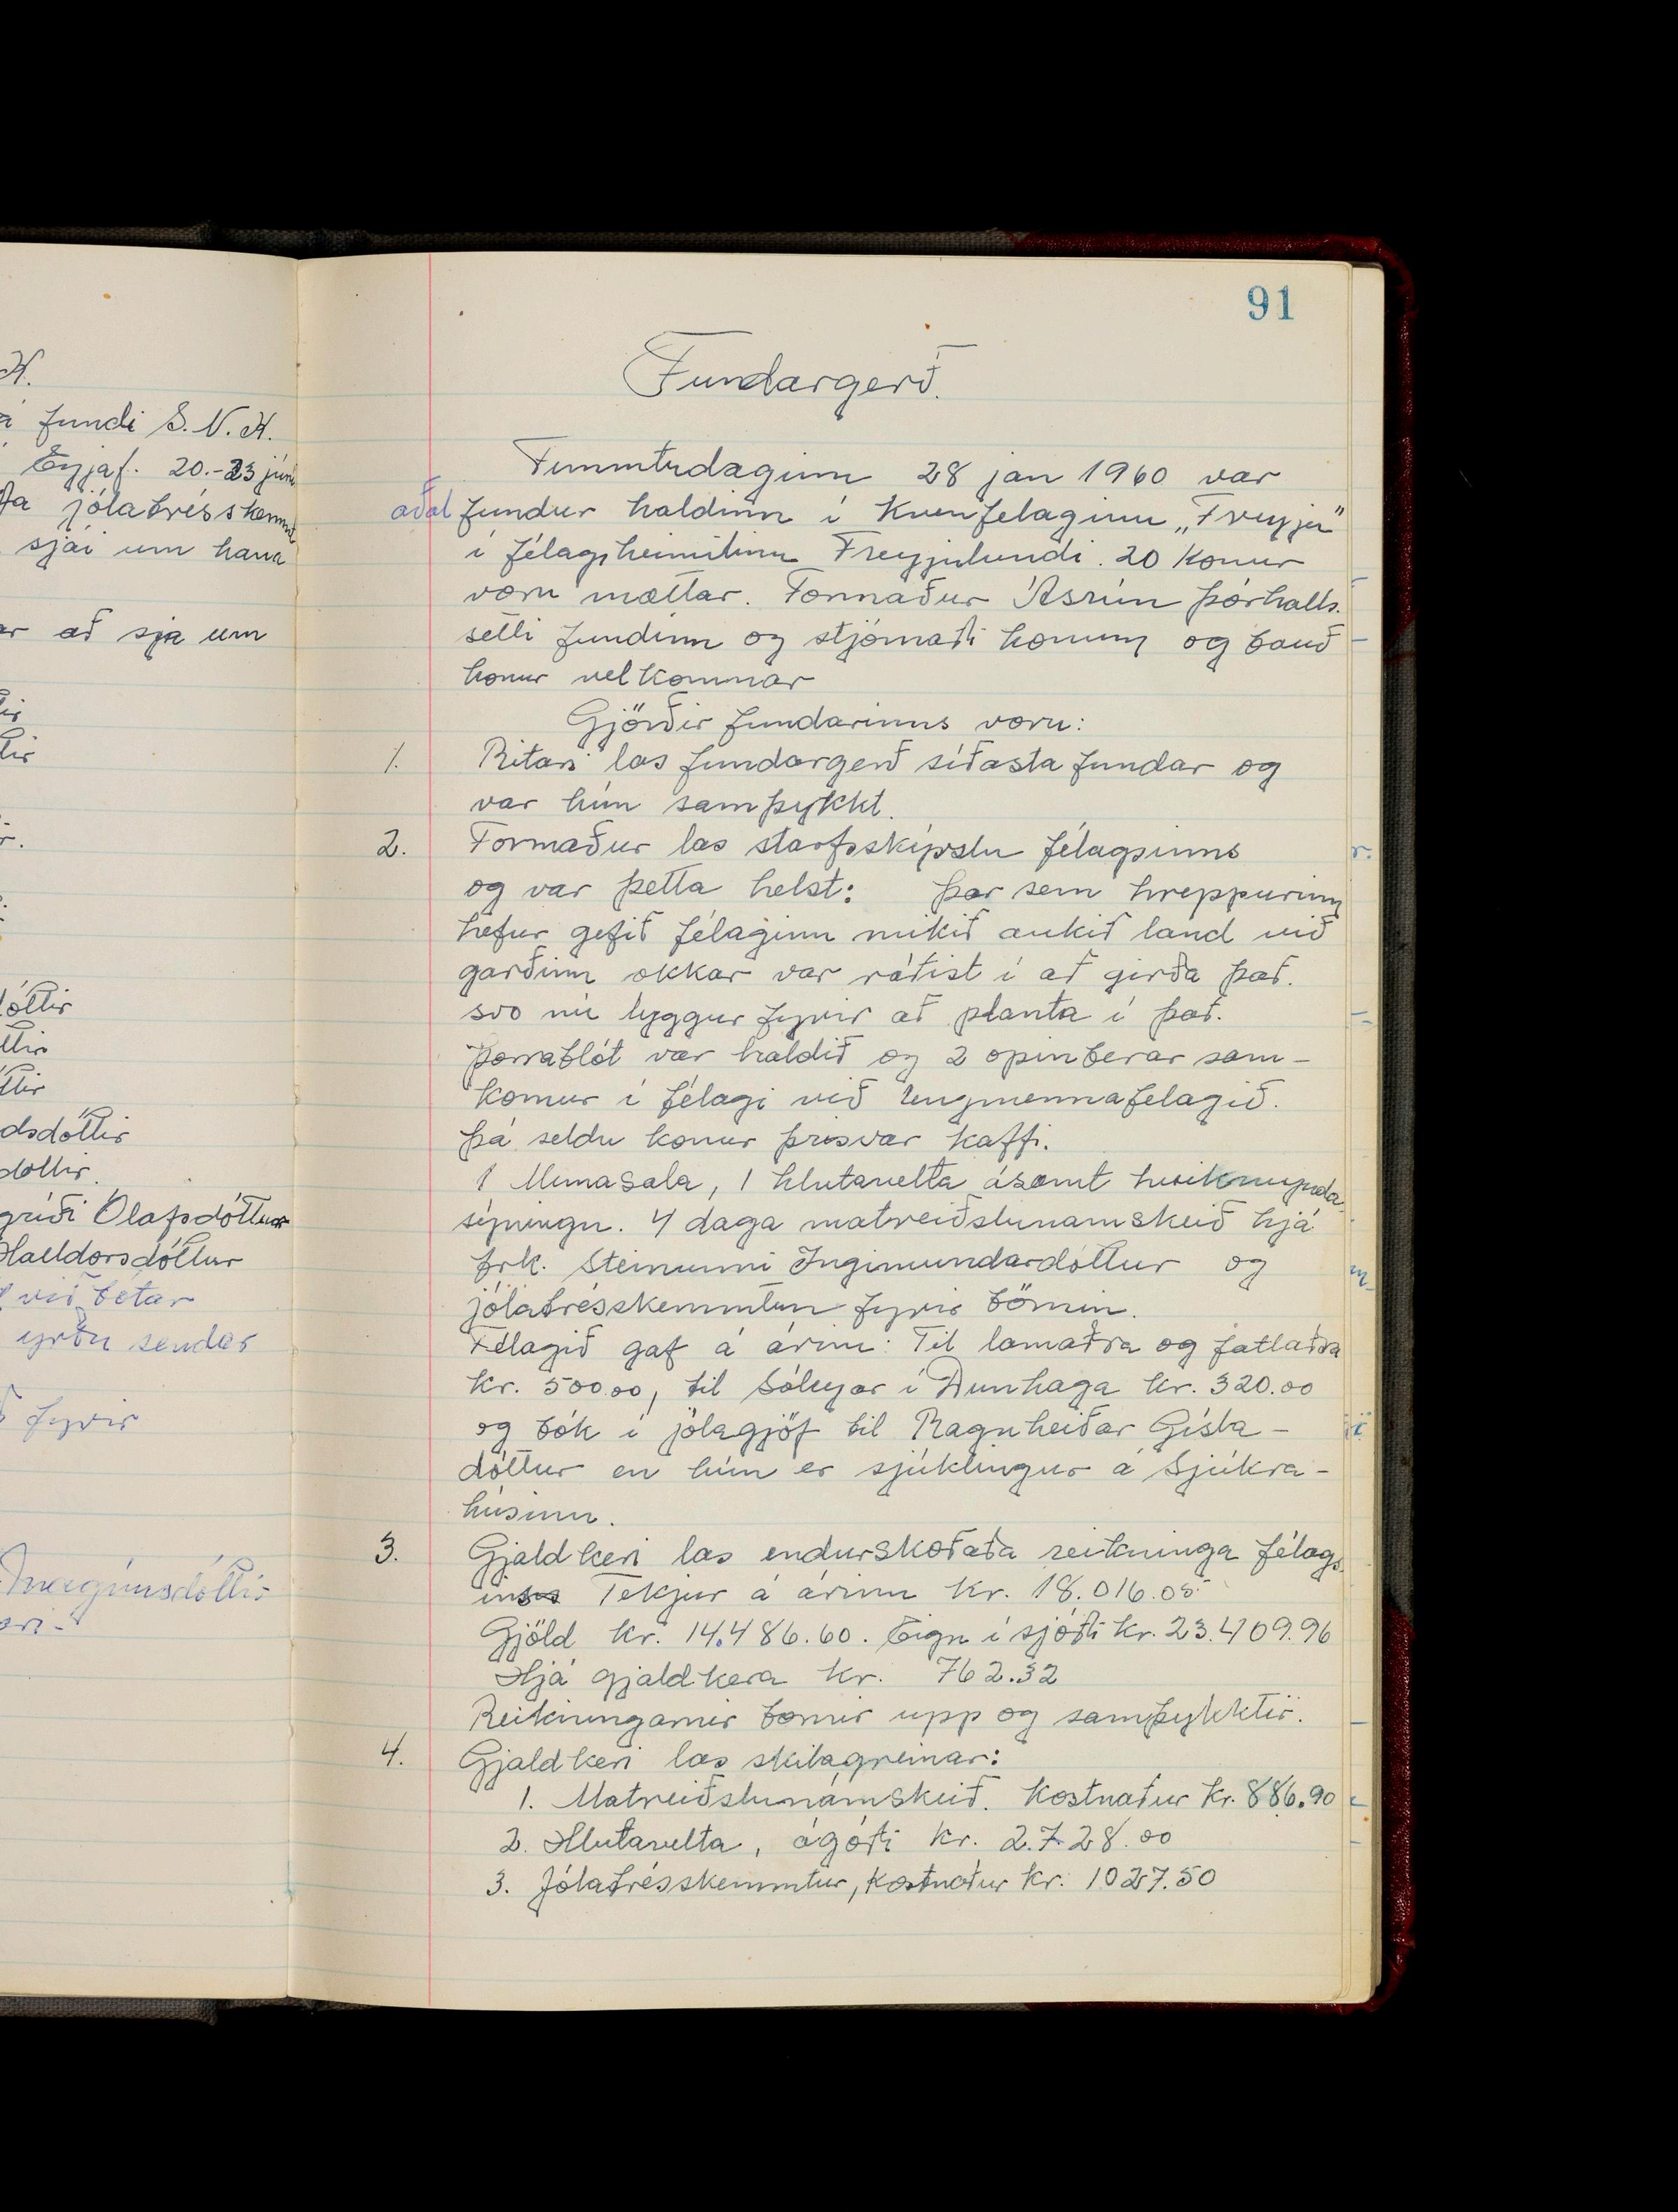 H.
á fundi S.N.H.
Eyjaf. 20.-23 júní
jólatrésskemmt
sjái um hana
ar að sjá um
óttir
dsdóttir
dóttir.
gríði Ólafsdóttur
Halldórsdóttur
við bétar
yrðu sendar
fyrir
Magnúsdóttir
91
Fundargerð.
Fimmtudaginn 28 jan 1960 var
aðal fundur haldinn í Kvenfelaginu „Freyju"
í félagsheimilinu Freyjulundi. 20 konur
voru mættar. Formaður Ásrún Þórhalls.
setti fundinn og stjórnaði honum og bauð
konur velkomnar
Gjörðir fundarinns voru:
1. Ritari las fundargerð síðasta fundar og
var hún samþykkt.
2. Formaður las starfsskýrslu félagsinns
og var þetta helst: Þar sem hreppurinn
hefur gefið félaginu mikið aukið land við
garðinn okkar var ráðist í að girða það.
svo nú lyggur fyrir að planta í það.
Þorrablót var haldið og 2 opinberar sam-
komur í félagi við Ungmennafelagið.
Þá seldu konur þrisvar kaffi.
1 Munasala, 1 hlutavelta ásamt kvikmynda
sýningu. 4 daga matreiðslunámskeið hjá
frk. Steinunni Ingimundardóttur og
jólatrésskemmtun fyrir börnin.
Félagið gaf á árinu: Til lamaðra og fatlaðra
kr. 500.00, til Sóleyjar í Dunhaga kr. 320.00
og bók í jólagjöf til Ragnheiðar Gísla-
dóttur en hún er sjúklingur á Sjúkra-
húsinu.
3. Gjaldkeri las endurskoðaða reikninga félags
ins Tekjur á árinu kr. 18.016.05
Gjöld kr. 14.486.60. Eign í sjóði kr. 23.409.96
Hjá gjaldkera kr. 762.32
Reikningarnir bornir upp og samþykktir.
4. Gjaldkeri las skilagreinar:
1. Matreiðslunámskeið. Kostnaður kr. 886.90
2. Hlutavelta, ágóði kr. 2.728.00
3. Jólatrésskemmtun, kostnaður kr. 1027.50